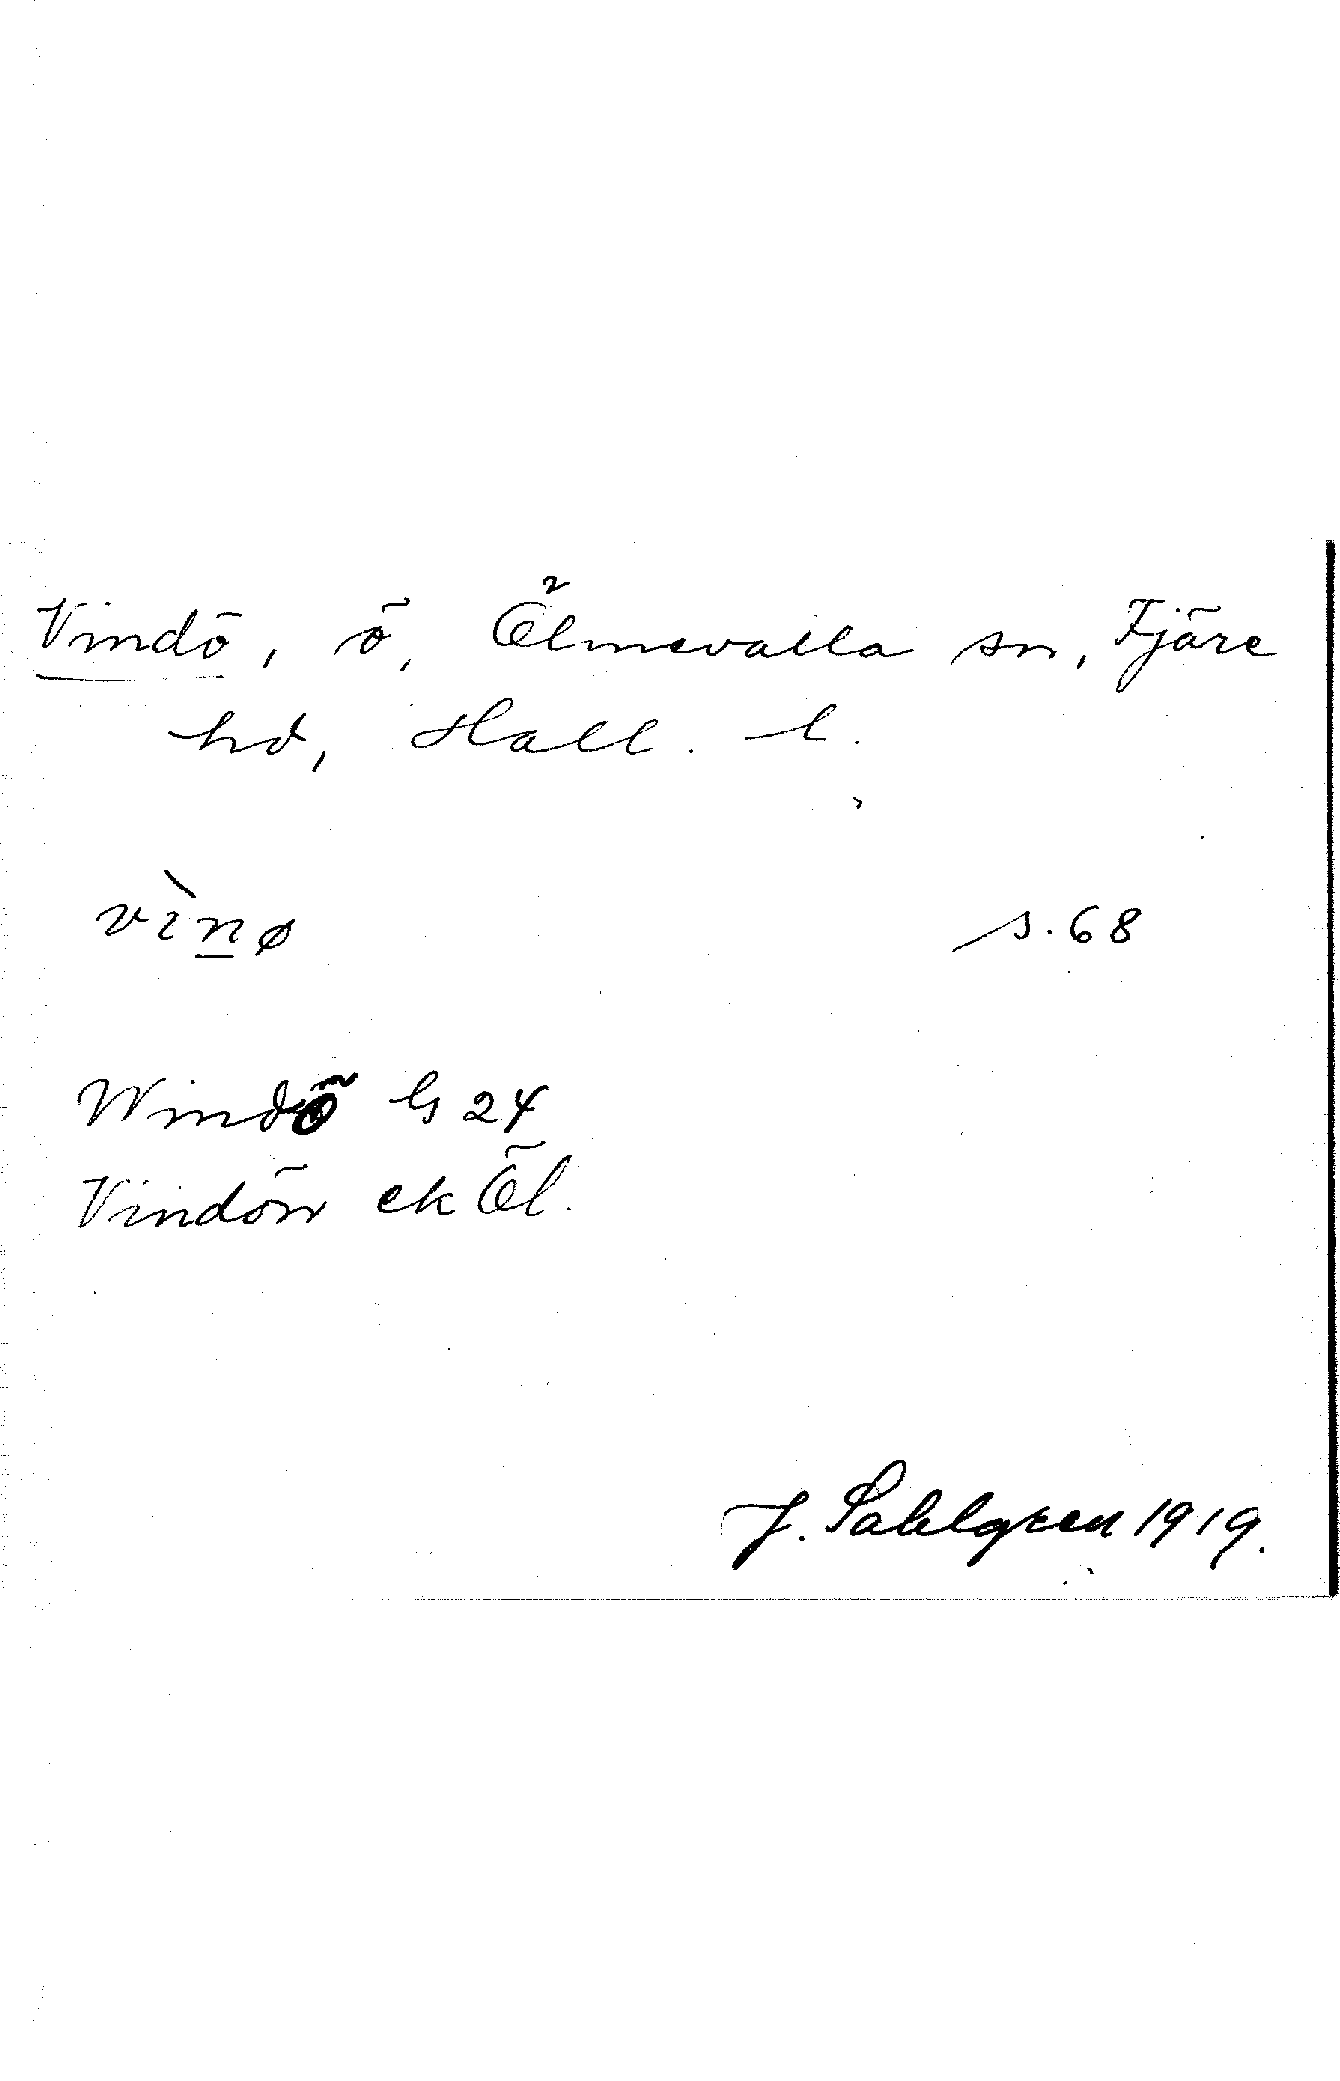 Vindö, ö, Ölmevalla sn, Fjäre
hd, Hall. l.
vìnø s. 68
Windö G 24
Vindön ek Öl.
J. Sahlgren 1919.